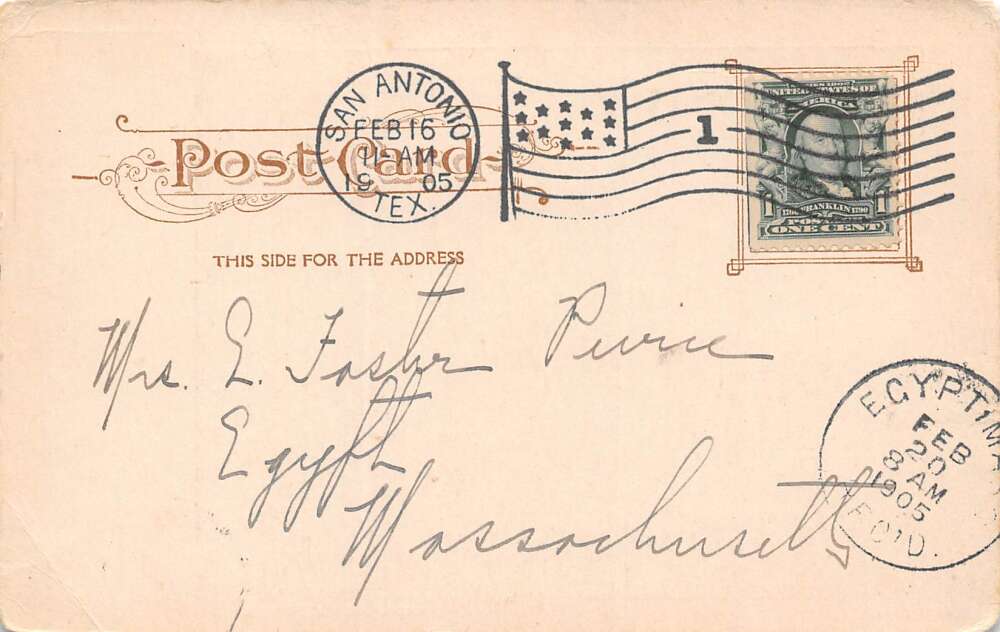 SAN ANTONIO
FEB 16
11-AM
1905
TEX.
1
SERIES 1902
UNITED STATES OF
AMERICA
1
1
1706 FRANKLIN 1790
POSTAGE
ONE CENT
Post Card
THIS SIDE FOR THE ADDRESS
Mrs. E. Foster Peirce
Egypt
Massachusetts
EGYPT, MA
FEB
20
8 AM
1905
REC'D.